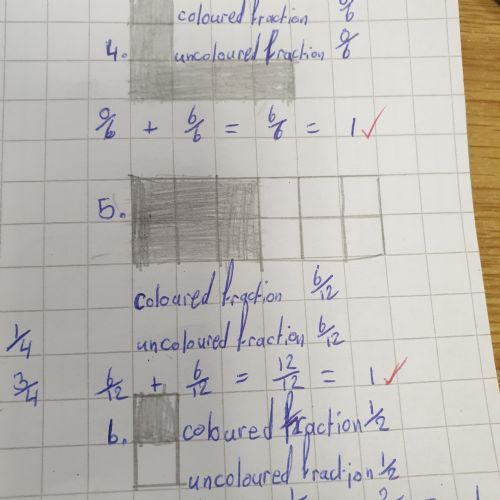 coloured fraction 6/6
4. uncoloured fraction 0/6
0/6 + 6/6 = 6/6 = 1 ✓
5.
coloured fraction 6/12
1/4 uncoloured fraction 6/12
3/4 6/12 + 6/12 = 12/12 = 1 ✓
6. coloured fraction 1/2
uncoloured fraction 1/2